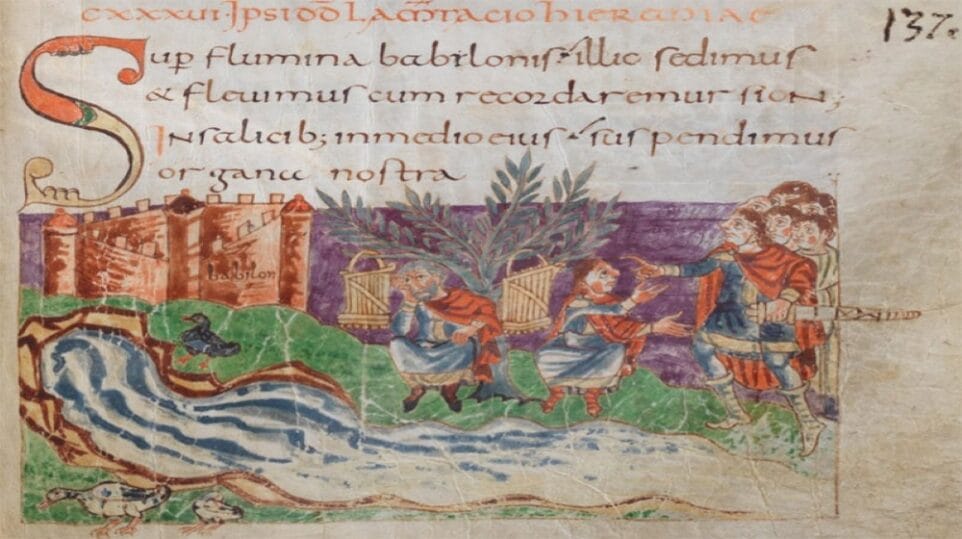 cxxxvi. Ipsi dd Lam̄tacio hieremiae
137.
Sup flumina babilonis illic sedimus
& fleuimus cum recordaremur sion;
In salicib; in medio eius suspendimus
organa nostra
babilon